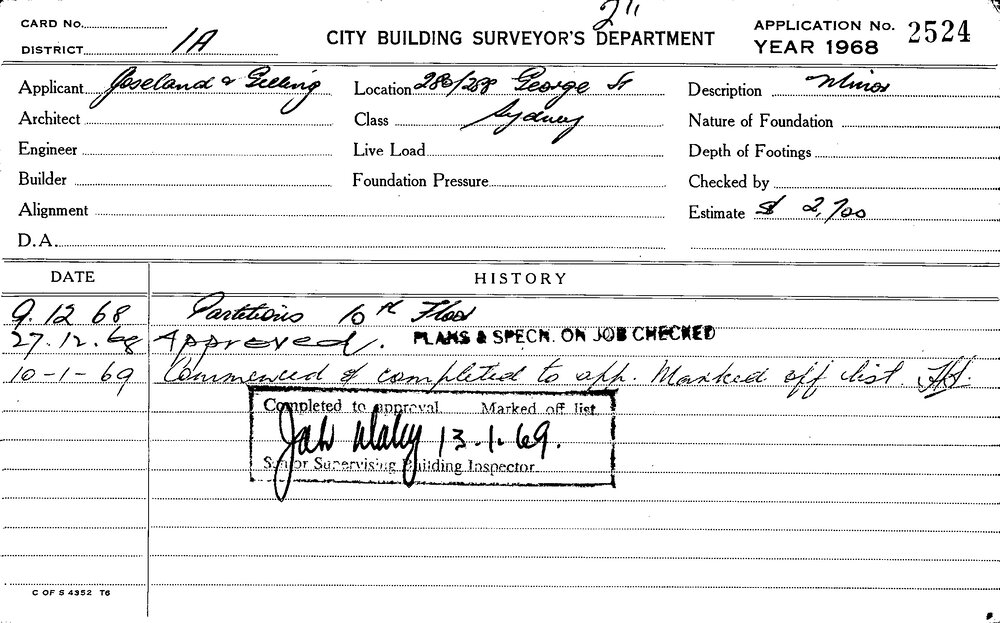 CARD No.
DISTRICT 1A
2"
CITY BUILDING SURVEYOR'S DEPARTMENT
APPLICATION No. 2524
YEAR 1968
Applicant Joseland & Gilling
Location 286/288 George St
Description Minor
Architect
Class Sydney
Nature of Foundation
Engineer
Live Load
Depth of Footings
Builder
Foundation Pressure
Checked by
Alignment
Estimate $ 2,700
D.A.
DATE HISTORY
9.12 68 Partitions 10th Floor
27.12.68 Approved. PLANS & SPECN. ON JOB CHECKED
10-1-69 Commenced & completed to app. Marked off list.
Completed to approval Marked off list
13.1.69.
Senior Supervising Building Inspector
C OF S 4352 T6